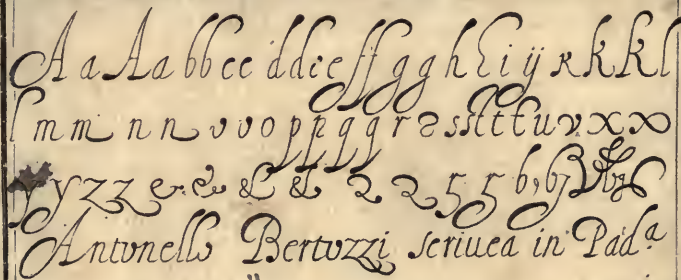 A a A a b b c c d d e e f f g g h h i ij k k k l
l m m n n v v o p p q q r ƨ s s t t t u v x x
y y z z & & & & 2 2 5 5 b, bz
Antonello Bertozzi scriuea in Pad.ª